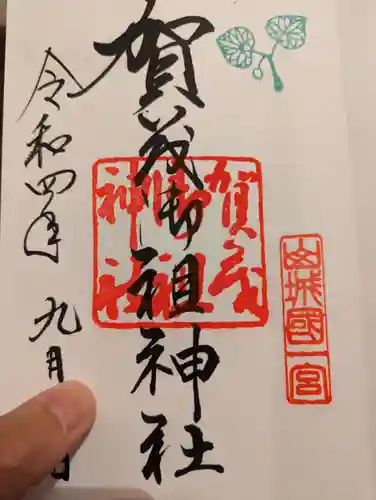 山城國一宮
賀茂御祖神社
賀茂御祖神社
令和四年九月